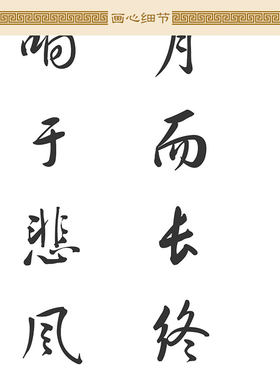 画心细节
月而长终
响于悲风